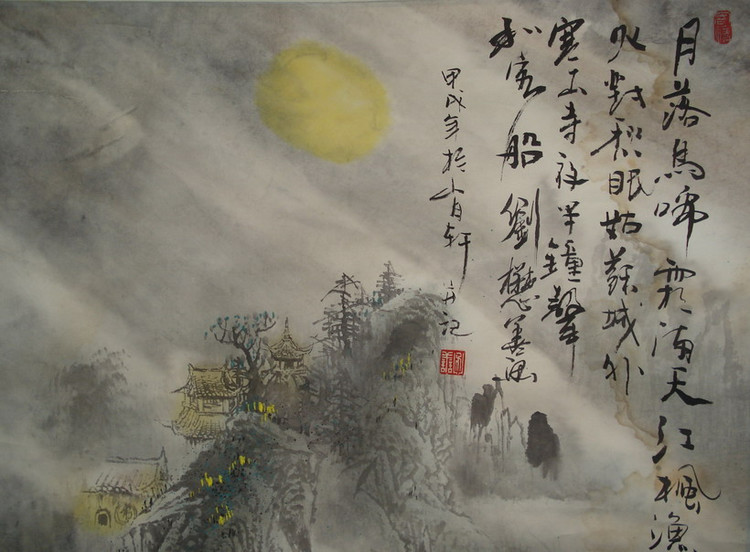 月落烏啼霜滿天江楓漁
火對愁眠姑蘇城外
寒山寺夜半鐘聲
到客船 劉懋善画
甲戌年於 轩并记